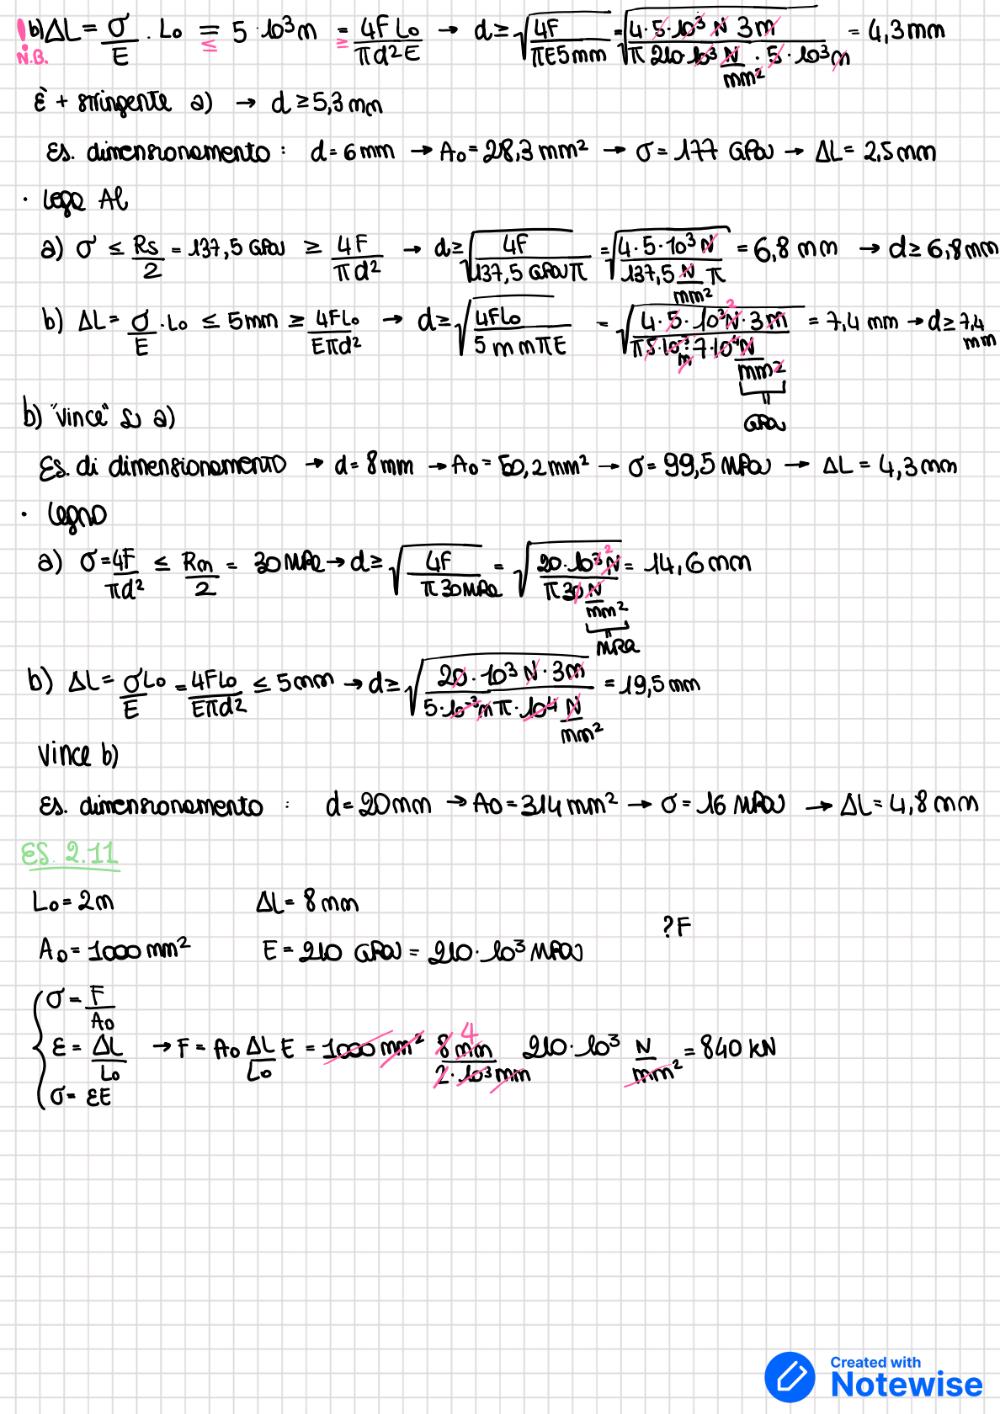 ! b) ΔL = σ/E · L₀ = ≤ 5·10³ m = ≥ 4F L₀/πd²E → d ≥ √(4F/πE5mm) = √(4·5·10³ N 3m / π 210·10³ N/mm² · 5·10³ m) = 4,3 mm
N.B.
È + stringente a) → d ≥ 5,3 mm
Es. dimensionamento : d = 6 mm → A₀ = 28,3 mm² → σ = 177 GPa → ΔL = 2,5 mm
· Lega Al
a) σ ≤ Rs/2 = 137,5 GPa ≥ 4F/πd² → d ≥ √(4F/137,5 GPa π) = √(4·5·10³ N / 137,5 N/mm² π) = 6,8 mm → d ≥ 6,8 mm
b) ΔL = σ/E · L₀ ≤ 5mm ≥ 4FL₀/Eπd² → d ≥ √(4FL₀/5 mm πE) = √(4·5·10³ ² N·3m / π 5·10⁻³ m 7·10⁴ N/mm²) = 7,4 mm → d ≥ 7,4 mm
GPa
b) "vince" su a)
Es. di dimensionamento → d = 8mm → A₀ = 50,2 mm² → σ = 99,5 MPa → ΔL = 4,3 mm
· Legno
a) σ = 4F/πd² ≤ Rm/2 = 30 MPa → d ≥ √(4F/π 30 MPa) = √(20·10³ ² N / π 30 N/mm²) = 14,6 mm
MPa
b) ΔL = σL₀/E = 4FL₀/Eπd² ≤ 5mm → d ≥ √(20·10³ N·3m / 5·10⁻³ m π·10⁴ N/mm²) = 19,5 mm
Vince b)
Es. dimensionamento : d = 20 mm → A₀ = 314 mm² → σ = 16 MPa → ΔL = 4,8 mm
ES. 2.11
L₀ = 2m ΔL = 8 mm
?F
A₀ = 1000 mm² E = 210 GPa = 210·10³ MPa
σ = F/A₀
ε = ΔL/L₀ → F = A₀ ΔL/L₀ E = 1000 mm² 8 4 mm/2·10³ mm 210·10³ N/mm² = 840 kN
σ = εE
Created with
Notewise